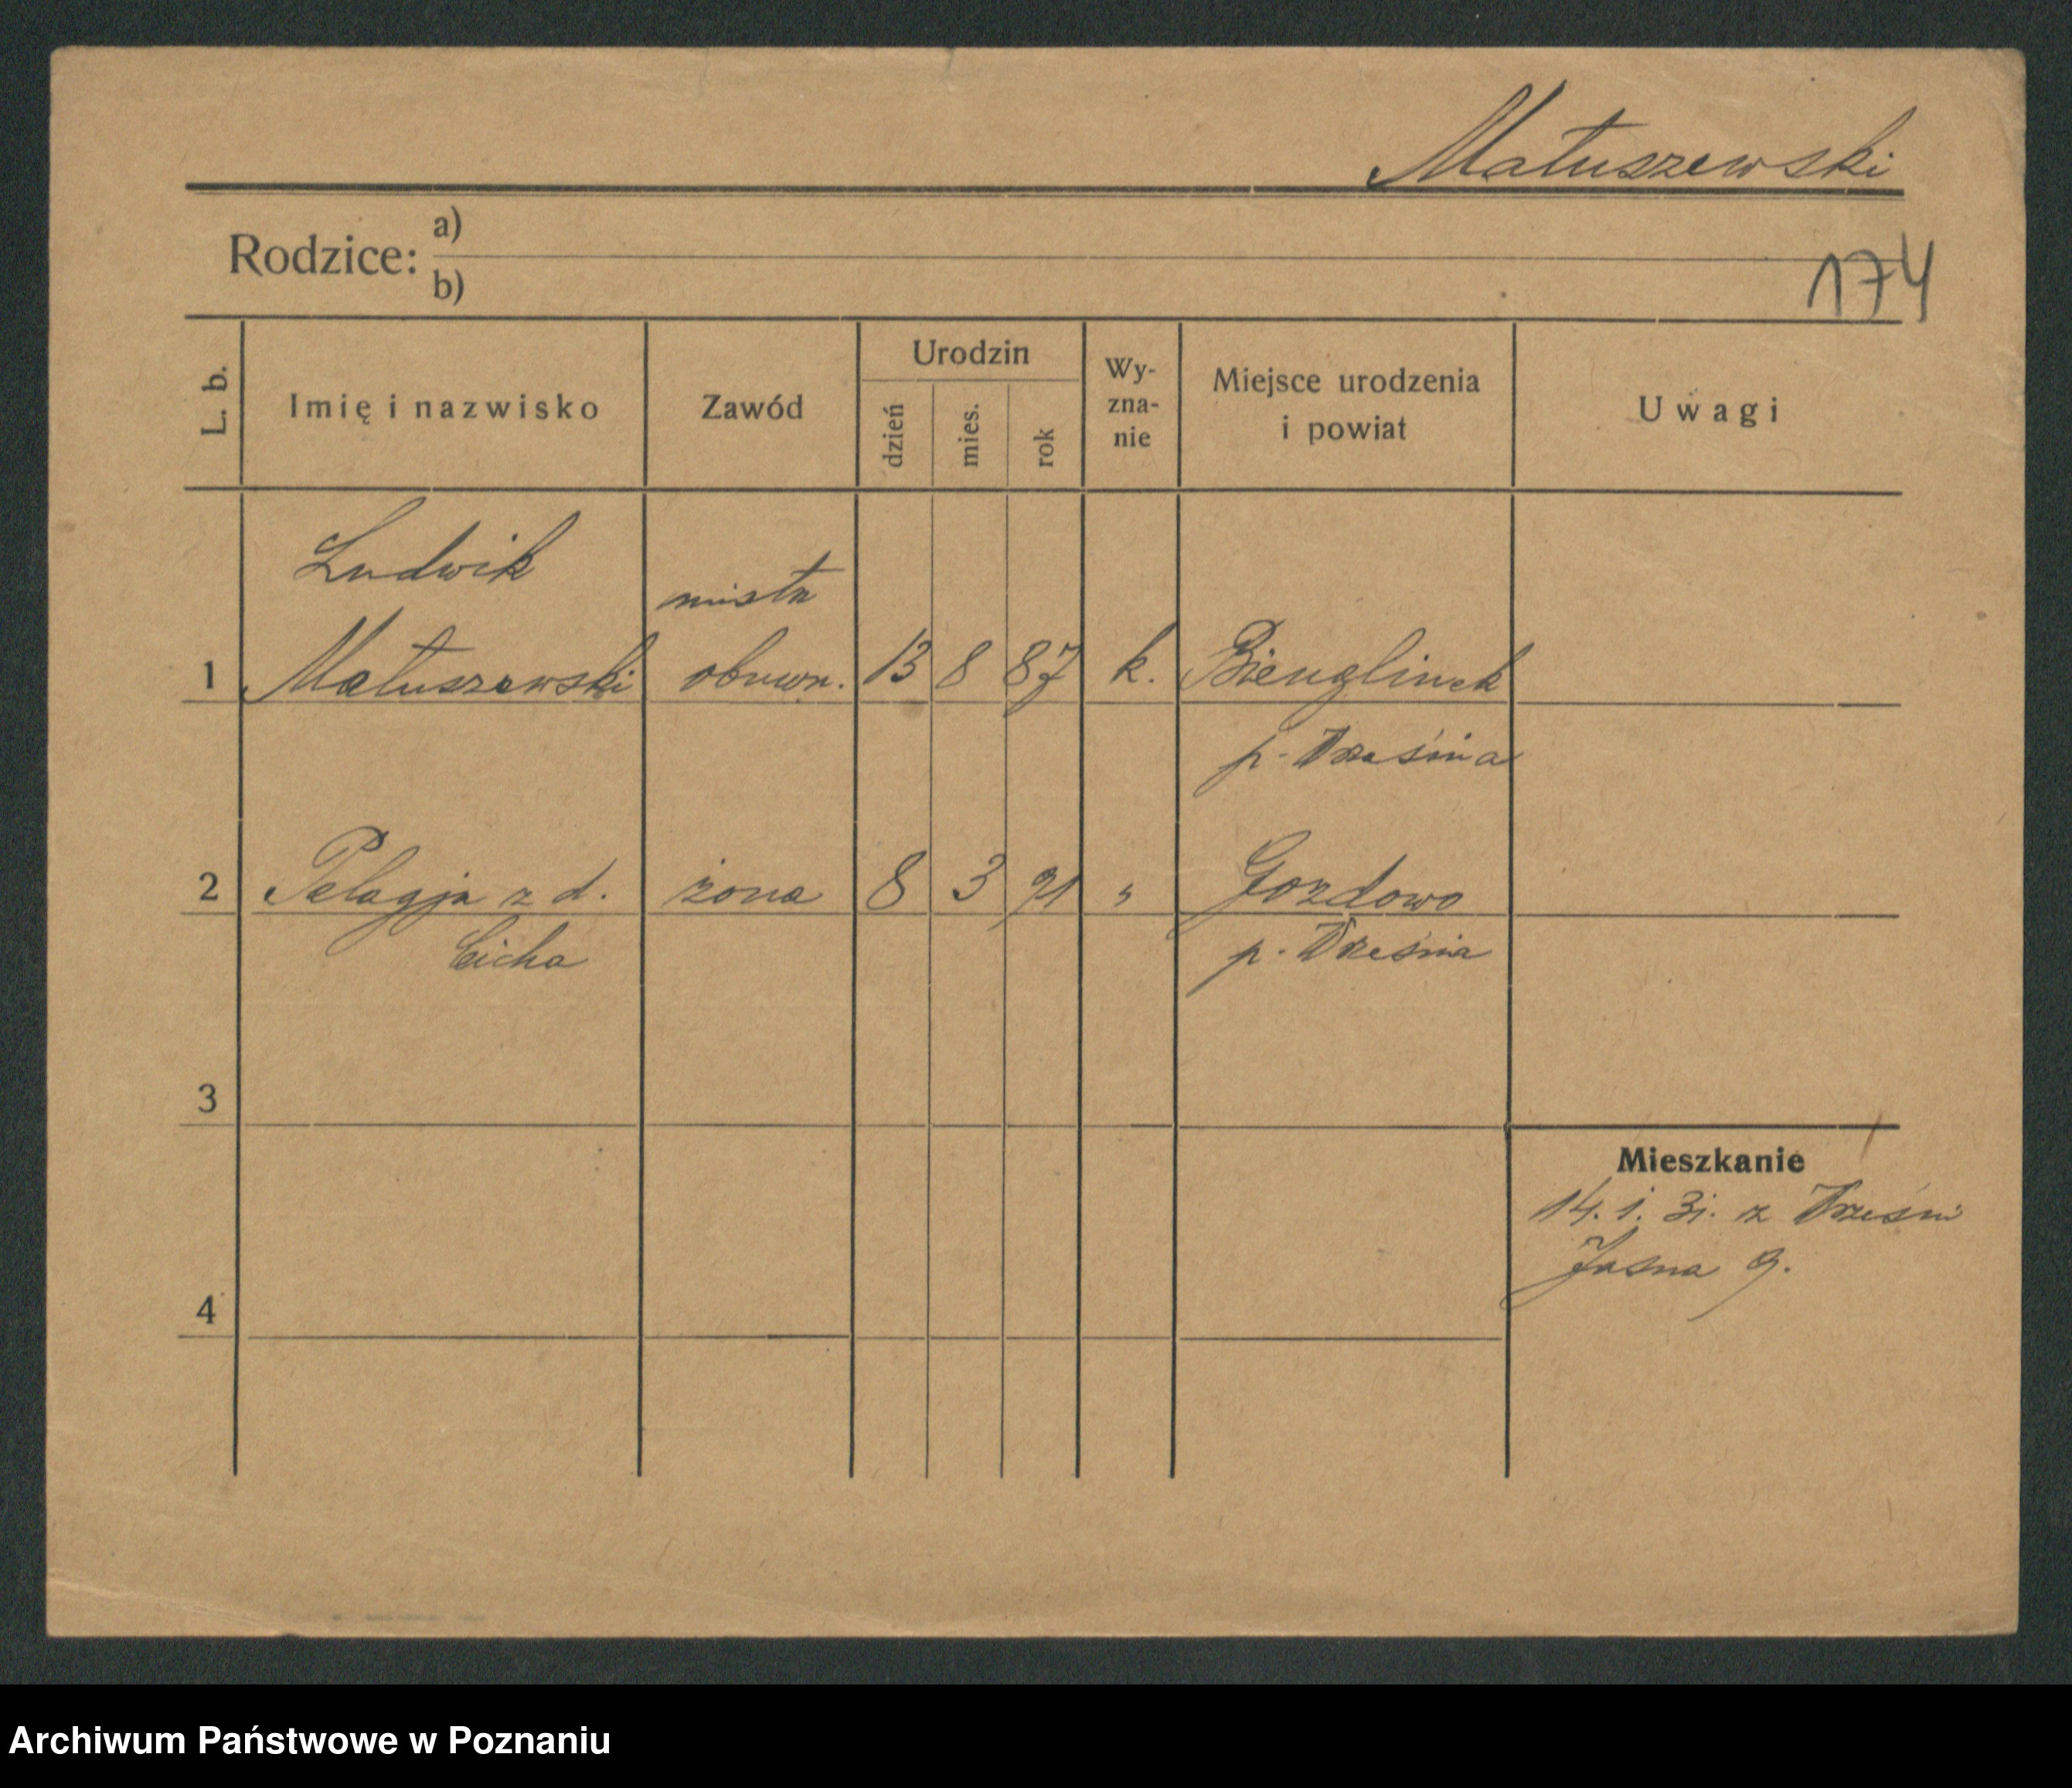 Matuszewski
Rodzice: a)
b)
174
L. b.
Imię i nazwisko
Zawód
Urodzin
dzień
mies.
rok
Wy-
zna-
nie
Miejsce urodzenia
i powiat
Uwagi
Ludwik
mistrz
1 Matuszewski obuwn. 13 8 87 k.
p. Września
2 Pelagja z d. żona 8 3 91 " Gozdowo
Cicha p. Września
3
Mieszkanie
14. 1. 31. z Wrześni
Jasna 9.
4
Archiwum Państwowe w Poznaniu